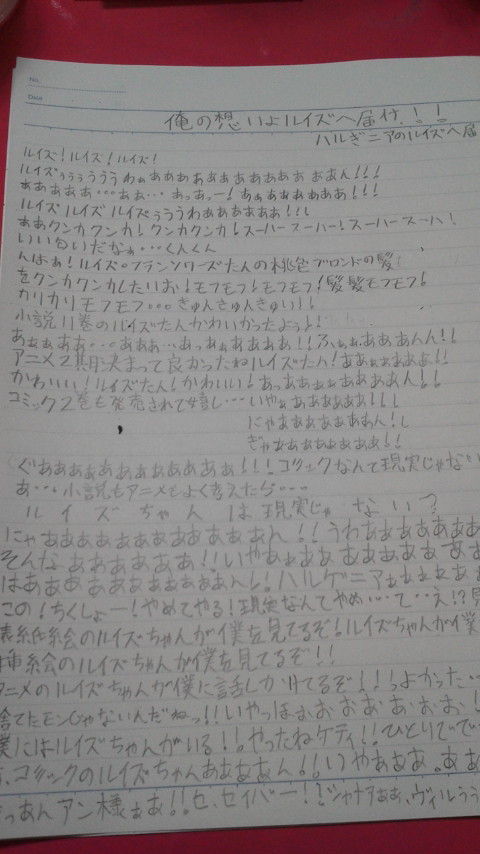 No.
Date
俺の想いよルイズへ届け!!
ハルギニアのルイズへ届
ルイズ!ルイズ!ルイズ!
ルイズぅぅぅうううわぁぁぁぁぁぁぁぁぁぁぁぁん!!!
あぁぁぁぁ…ぁぁ…あっあっー!あぁぁぁぁぁぁ!!!
ルイズルイズルイズぅぅうわぁぁぁぁぁ!!!
ああクンカクンカ!クンカクンカ!スーハースーハー!スーハースーハ!
いい匂いだなぁ…くんくん
んはぁ!ルイズ・フランソワーズたんの桃色ブロンドの髪
をクンカクンカしたいお!モフモフ!モフモフ!髪髪モフモフ!
カリカリモフモフ…きゅんきゅんきゅい!!
小説11巻のルイズたんかわいかったよぅ!!
あぁぁぁぁ…あああ…あっあぁぁああ!!ふぁぁああんん!!
アニメ2期決まって良かったねルイズたん!あぁぁぁぁぁ!!
かわいい!ルイズたん!かわいい!あっああぁぁああん!!
コミック2巻も発売されて嬉し…いやぁああああ!!!
にゃああああああん!!
ぎゃああああああああ!!
ぐあああああああああああ!!!コミックなんて現実じゃない
あ…小説もアニメもよく考えたら…
ルイズちゃんは現実じゃない?
にゃああああああああああああん!!うわああああああ
そんなぁああああああ!!いやぁぁぁああああああああ
はああああああああああん!!ハルゲニアああああぁ
この!ちくしょー!やめてやる!現実なんてやめ…て…え!?見
表紙絵のルイズちゃんが僕を見てるぞ!ルイズちゃんが僕
挿絵のルイズちゃんが僕を見てるぞ!!
アニメのルイズちゃんが僕に話しかけてるぞ!!!よかった…
捨てたモンじゃないんだねっ!!いやっほぉおおおおおお!
僕にはルイズちゃんがいる!!やったねケティ!!ひとりでで
コミックのルイズちゃんああああん!!いやあああ
っあんアン様ぁあ!!セ、セイバー!!シャナぁぁ、ヴィルうう